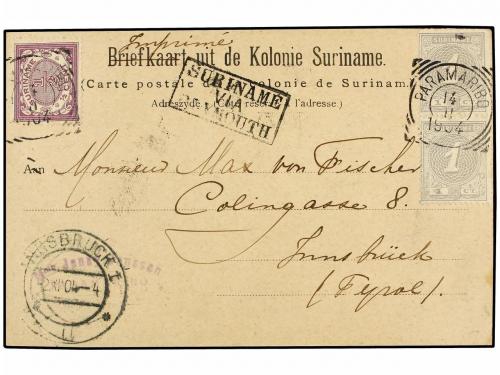 Imprimé
Briefkaart uit de Kolonie Suriname.
(Carte postale de la colonie de Suriname
Adreszyde. (Côté réservé à l'adresse.)
SURINAME
VIA
PLYMOUTH
PARAMARIBO
14
11
1904
1
1
CT.
Aan Monsieur Max von Fischer
Colingasse 8.
Innsbrück
(Tyrol).
INNSBRUCK 1
04-4
11